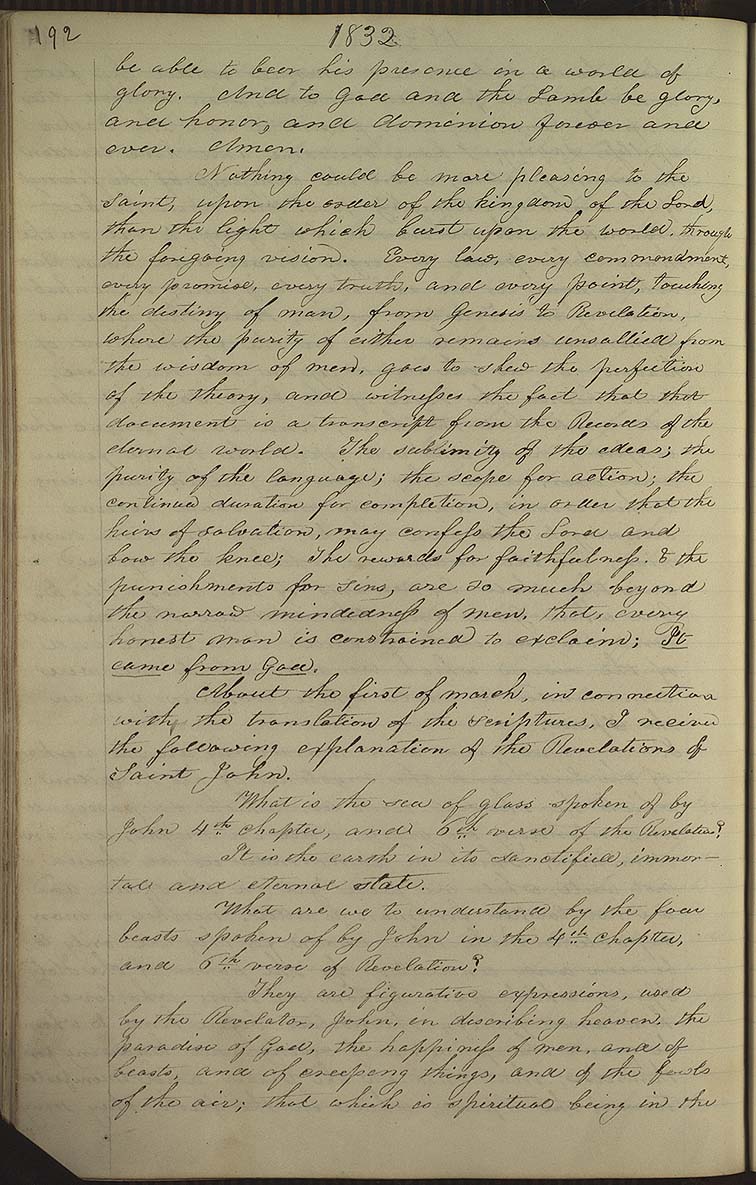 192
1832
be able to bear his presence in a world of
glory. And to God and the Lamb be glory,
and honor, and dominion forever and
ever. Amen.
Nothing could be more pleasing to the
Saint, upon the order of the kingdom of the Lord,
than the light which burst upon the world, through
the foregoing vision. Every law, every commandment,
every promise, every truth, and every point, touching
the destiny of man, from Genesis to Revelation,
where the purity of either remains unsullied from
the wisdom of men, goes to shew the perfection
of the theory, and witnesses the fact that that
document is a transcript from the Records of the
eternal world. The sublimity of the ideas; the
purity of the language; the scope for action; the
continued duration for completion, in order that the
heirs of salvation, may confess the Lord and
bow the knee; The rewards for faithfulness. & the
punishments for sins, are so much beyond
the narrow mindedness of men, that, every
honest man is constrained to exclaim; It
came from God.
About the first of march, in connection
with the translation of the scriptures, I received
the following explanation of the Revelations of
Saint John.
What is the sea of glass spoken of by
John 4th chapter, and 6th verse of the Revelation?
It is the earth in its sanctified, immor–
tal and eternal state.
What are we to understand by the four
beasts spoken of by John in the 4th chapter,
and 6th verse of Revelation?
They are figurative expressions, used
by the Revelator, John, in describing heaven, the
paradise of God, the happiness of men, and of
beasts, and of creeping things, and of the fowls
of the air; that which is spiritual being in the